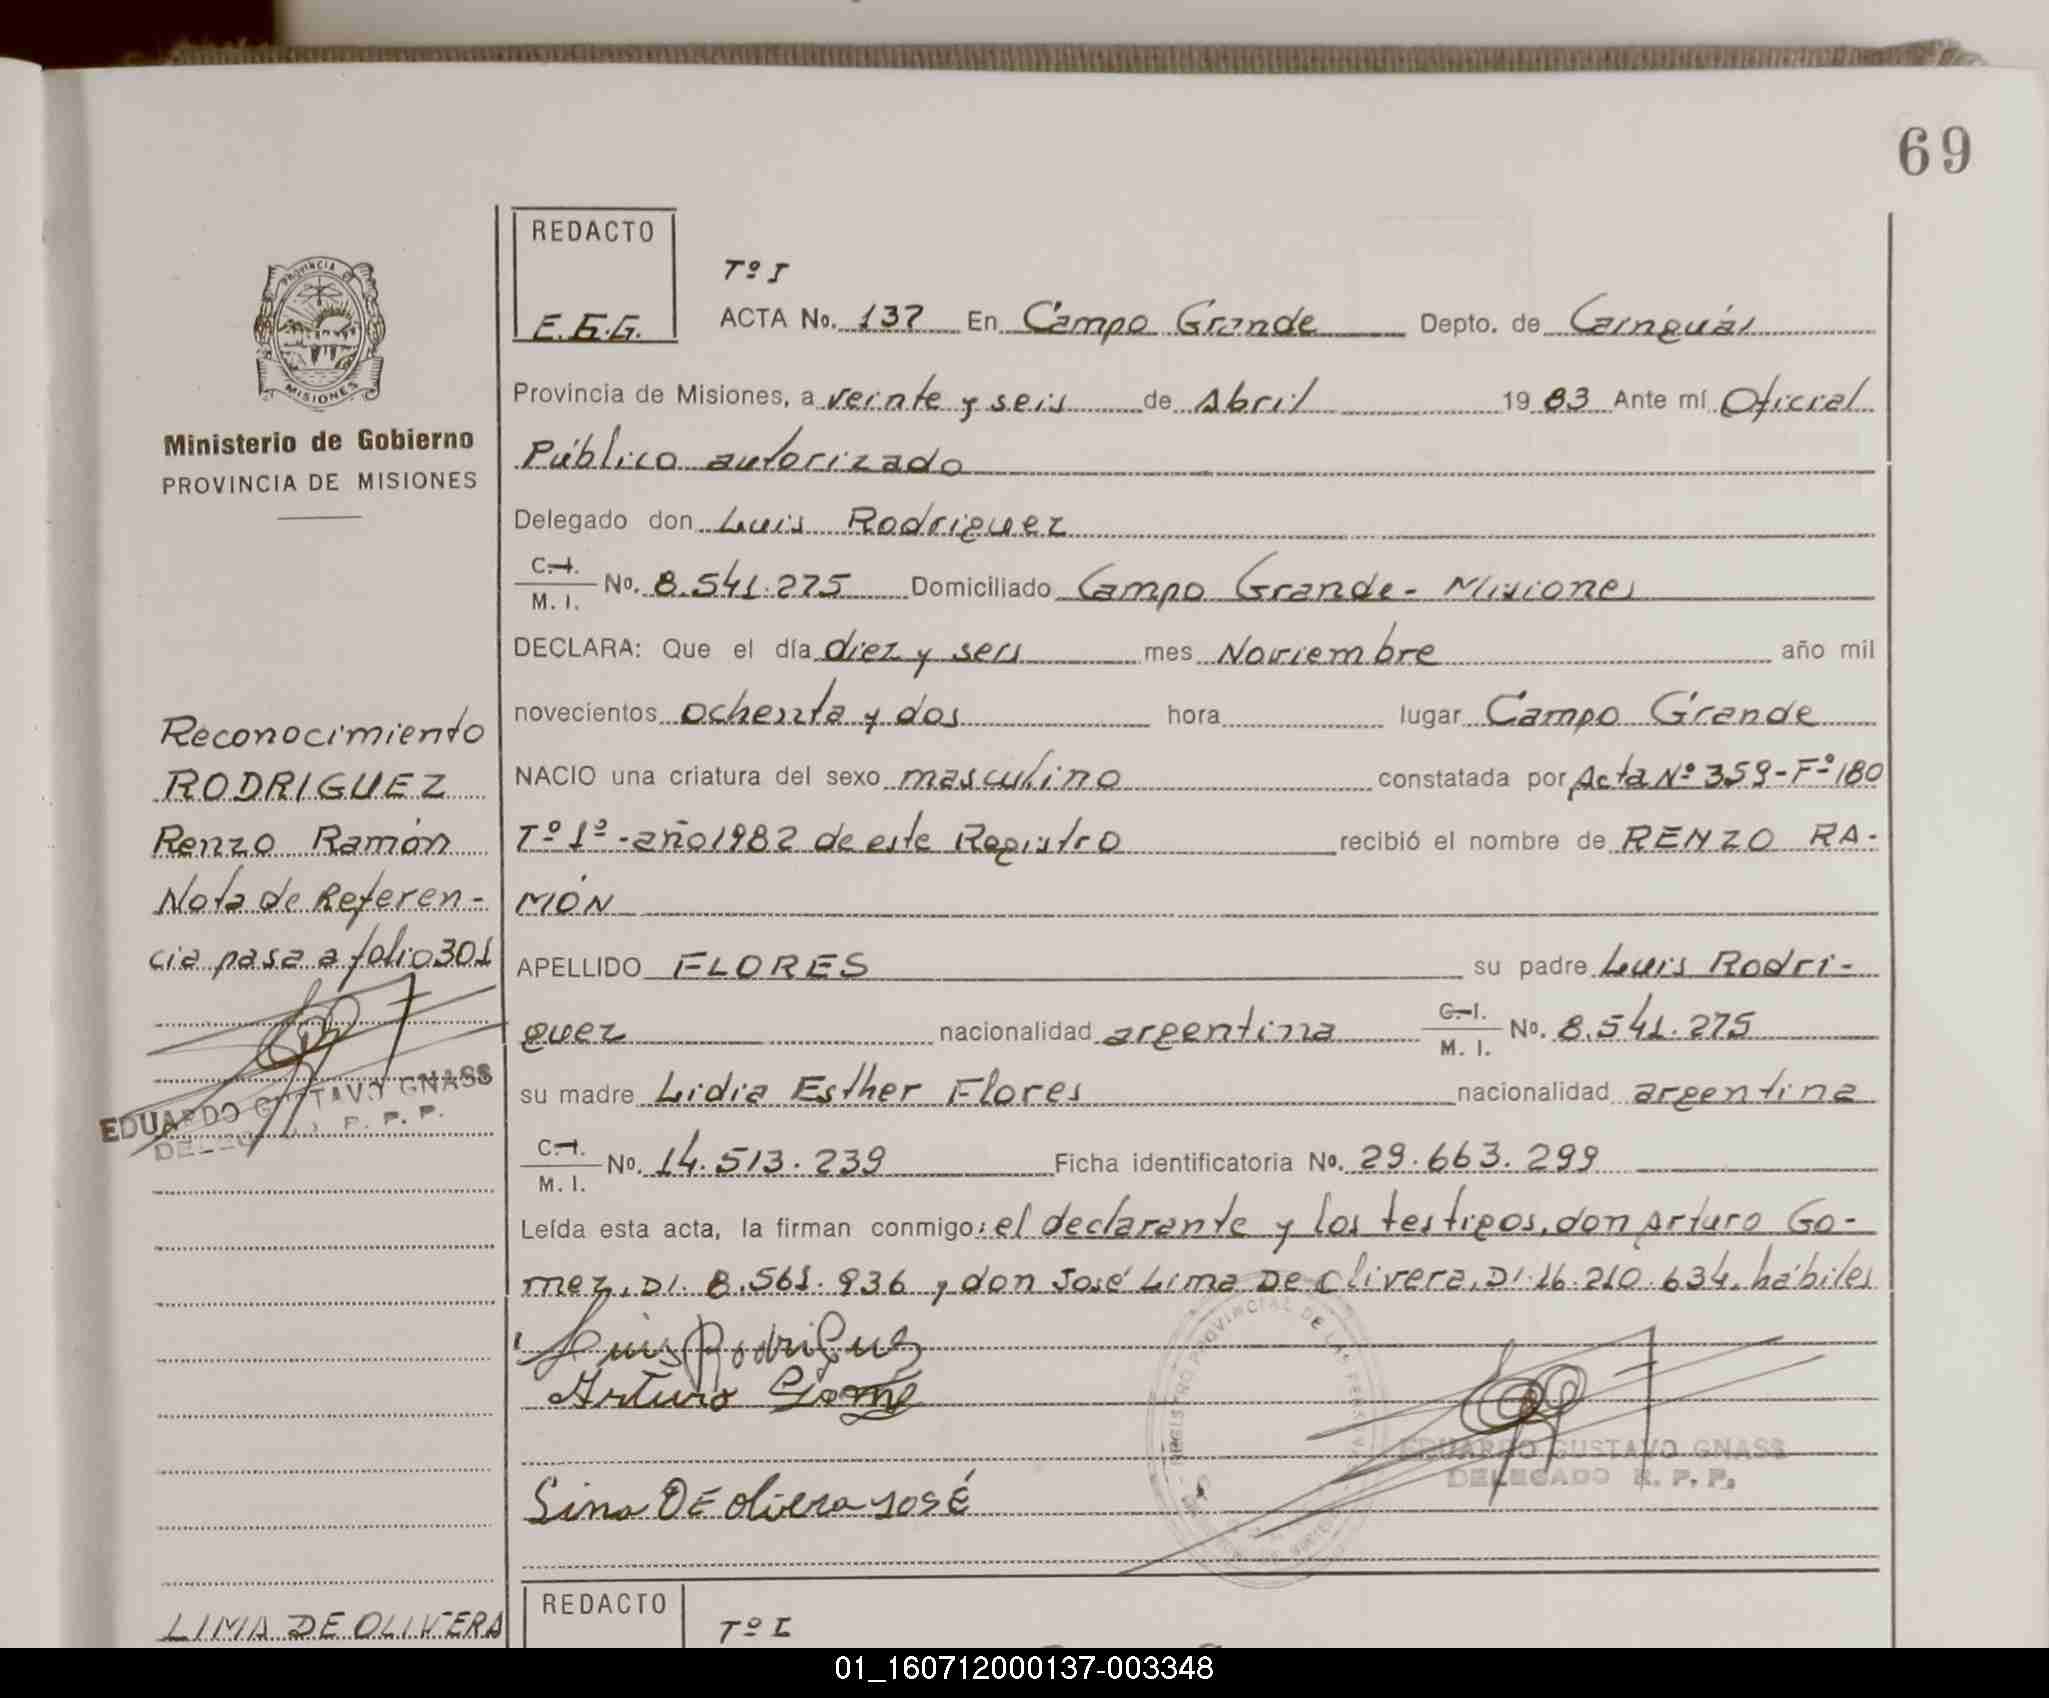 69
REDACTO
E.G.G.
Tº I
ACTA No. 137 En Campo Grande Depto. de Cainguás
Provincia de Misiones, a veinte y seis de Abril 1983 Ante mí Oficial
Público autorizado
Delegado don Luis Rodriguez
C.I. M. I. No. 8.541.275 Domiciliado Campo Grande - Misiones
DECLARA: Que el día diez y seis mes Noviembre año mil
novecientos ochenta y dos hora lugar Campo Grande
NACIO una criatura del sexo masculino constatada por Acta Nº 359 - Fº 180
Tº 1º - año 1982 de este Registro recibió el nombre de RENZO RA-
MÓN
APELLIDO FLORES su padre Luis Rodri-
guez nacionalidad argentina C.I. M. I. No. 8.541.275
su madre Lidia Esther Flores nacionalidad argentina
C.I. M. I. No. 14.513.239 Ficha identificatoria No. 29.663.299
Leída esta acta, la firman conmigo: el declarante y los testigos, don Arturo Go-
mez, DI. 8.561.936 y don José Lima De Olivera, DI. 16.210.634, hábiles
Luis Rodriguez
Arturo Gome
Lima DE olivera José
REGISTRO PROVINCIAL DE LAS PERSONAS
EDUARDO GUSTAVO GNASS
DELEGADO R. P. P.
PROVINCIA DE
MISIONES
Ministerio de Gobierno
PROVINCIA DE MISIONES
Reconocimiento
RODRIGUEZ
Renzo Ramón
Nota de Referen-
cia pasa a folio 301
EDUARDO GUSTAVO GNASS
R. P. P.
LIMA DE OLIVERA
REDACTO
Tº I
01_160712000137-003348